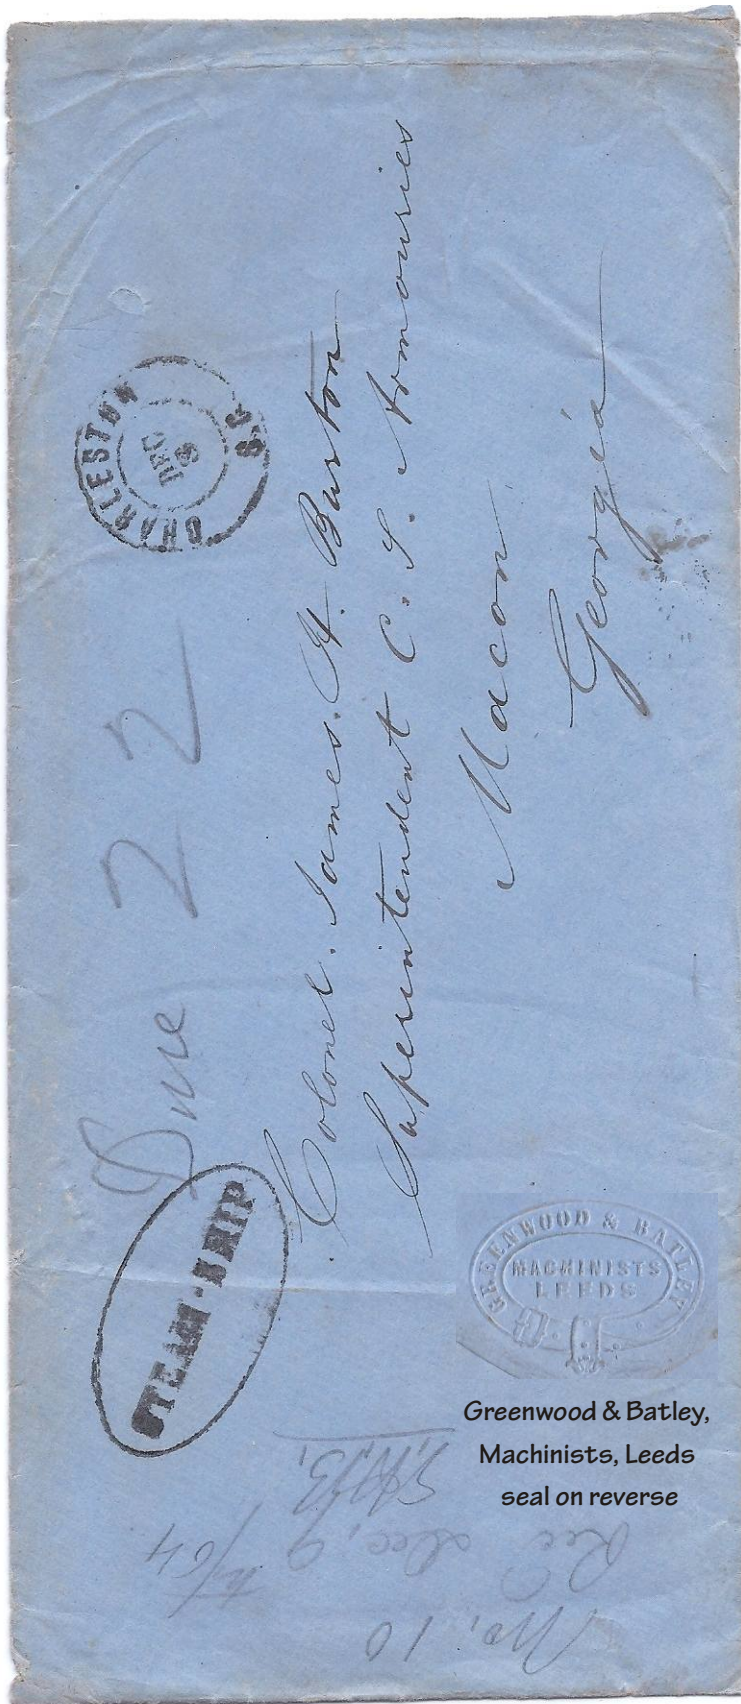 STEAM-SHIP
Due 22
CHARLESTON
DEC
8
S.C.
Colonel. James. H. Burton
Superintendent C. S. Armouries
Macon
Georgia
GREENWOOD & BATLEY
MACHINISTS
LEEDS
Greenwood & Batley,
Machinists, Leeds
seal on reverse
No, 10
Rec Dec, 9th/64
J,H,B,